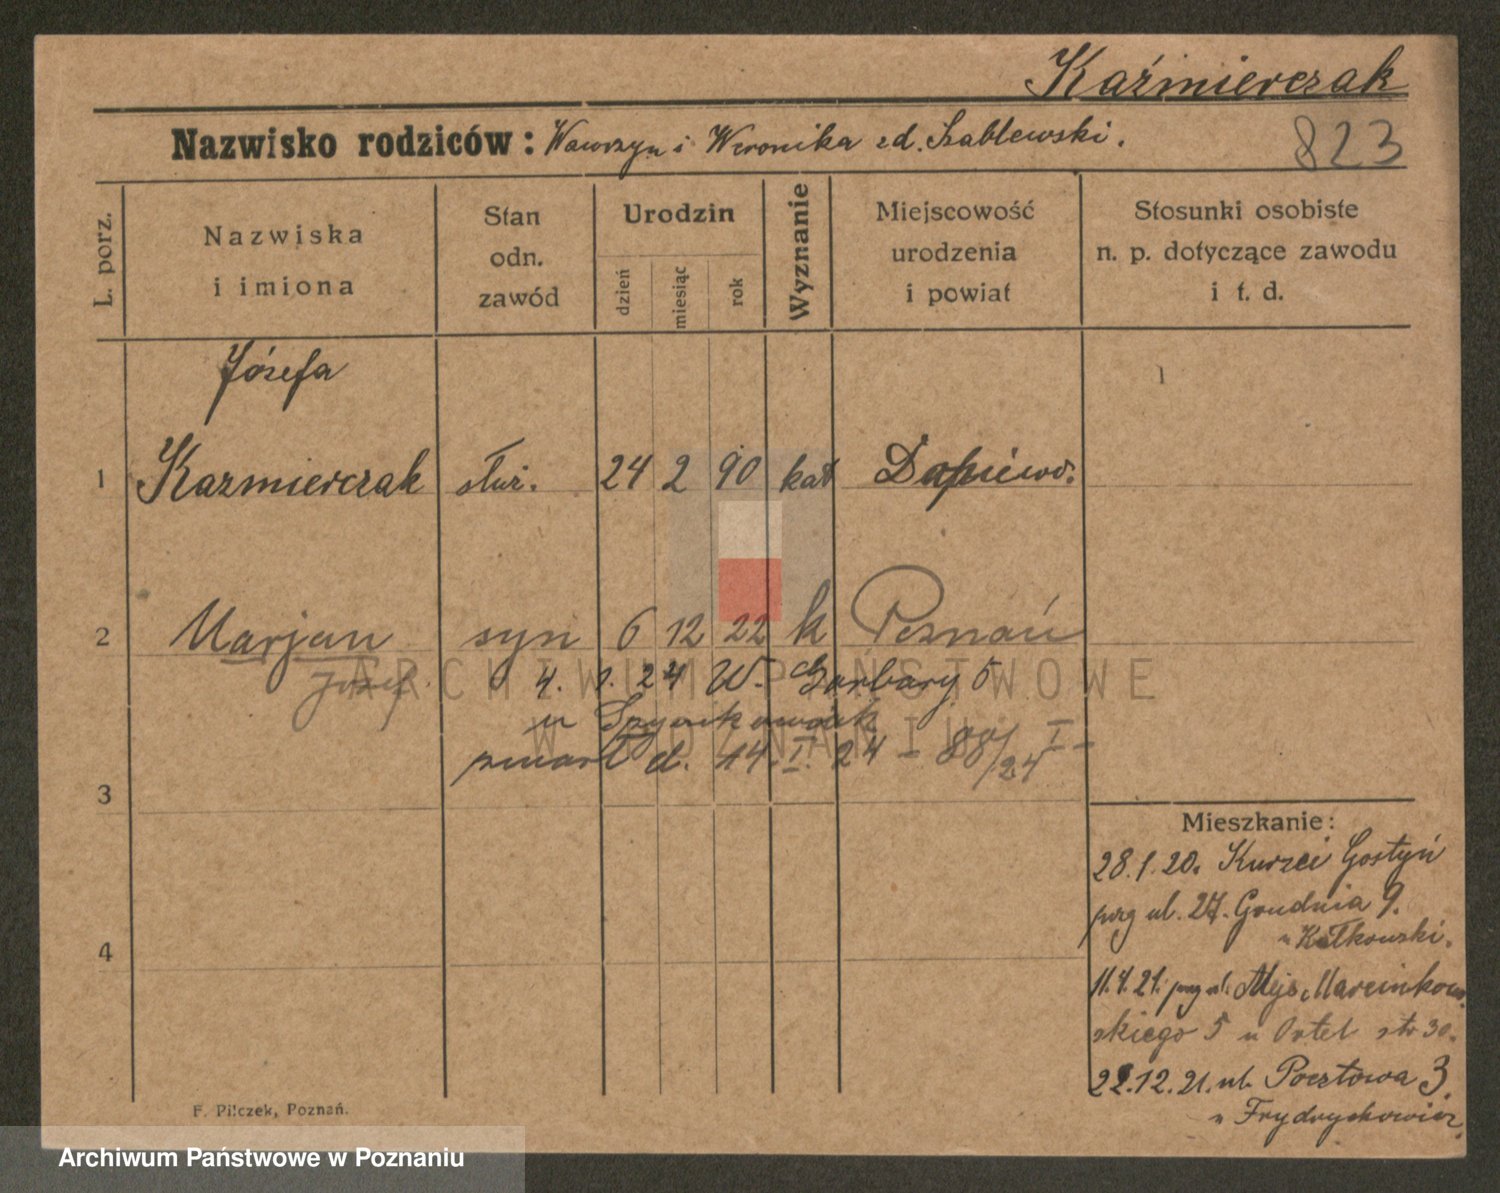 Kaźmierczak
Nazwisko rodziców: Wawrzyn i Weronika zd. Szablewski.
823
L. porz.
Nazwiska
i imiona
Stan
odn.
zawód
Urodzin
dzień
miesiąc
rok
Wyznanie
Miejscowość
urodzenia
i powiat
Stosunki osobiste
n. p. dotyczące zawodu
i t. d.
Józefa
1 Kazmierczak służ. 24 2 90 kat Dopiewo.
2 Marjan syn 6 12 22 k Poznań
Józef 4. 1. 24 W. Garbary 5
u
zmarł d. 14. I. 24 - 88/24 I -
3
4
Mieszkanie:
28.1.20. Gostyń
ul. 27. Grudnia 9.
u Kałkowski.
11.4.21. Marcinkow
skiego 5 u Ortel str 30.
22.12.21. ul. Pocztowa 3.
u Frydrychowicz
F. Pilczek, Poznań.
ARCHIWUM PAŃSTWOWE
W POZNANIU
Archiwum Państwowe w Poznaniu